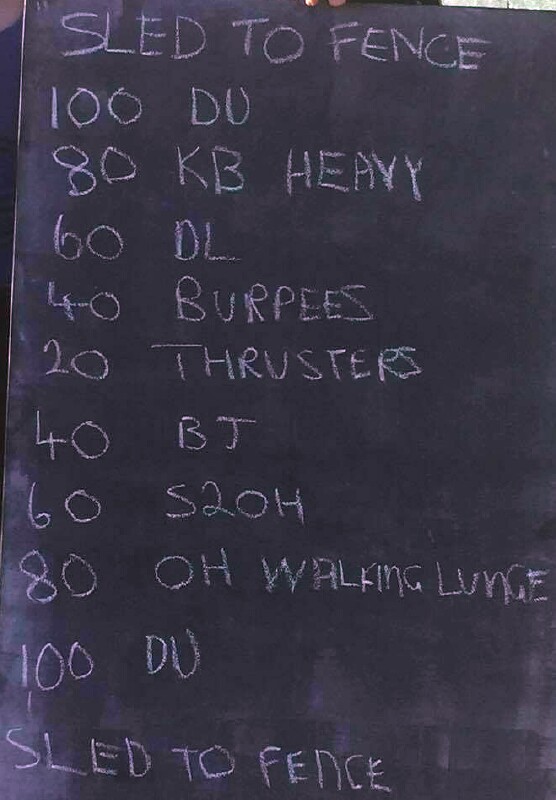 SLED TO FENCE
100 DU
80 KB HEAVY
60 DL
40 BURPEES
20 THRUSTERS
40 BJ
60 S2OH
80 OH WALKING LUNGE
100 DU
SLED TO FENCE